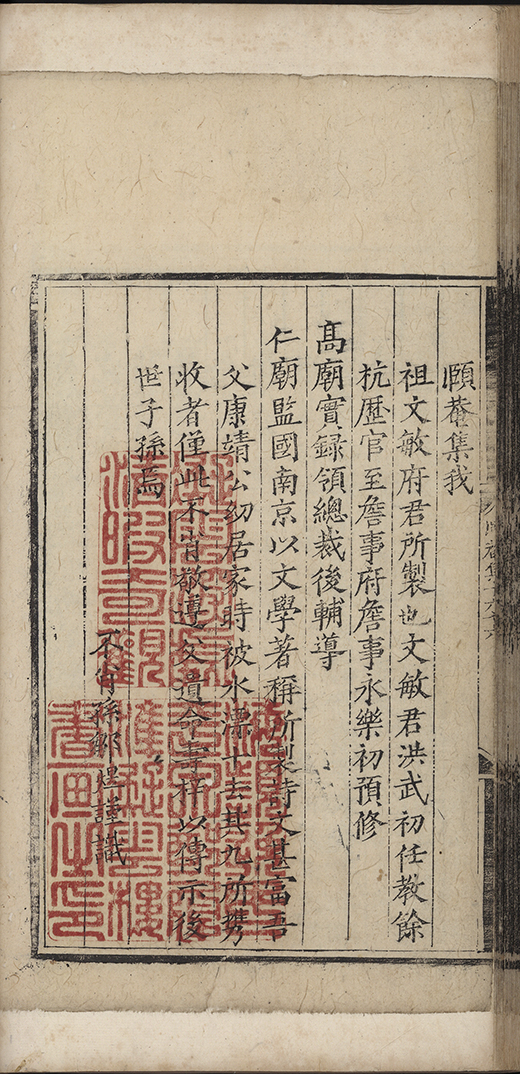 頤菴集我
祖文敏府君所製也文敏君洪武初任教餘
杭歷官至詹事府詹事永樂初預修
髙廟實録領總裁後輔導
仁廟監國南京以文學著稱所製詩文甚富吾
父康靖公幼居家時被水漂十去其九所携
收者僅此不肖敬遵父遺命壽梓以傳示後
世子孫焉
不肖孫鄒謹識
書画之印